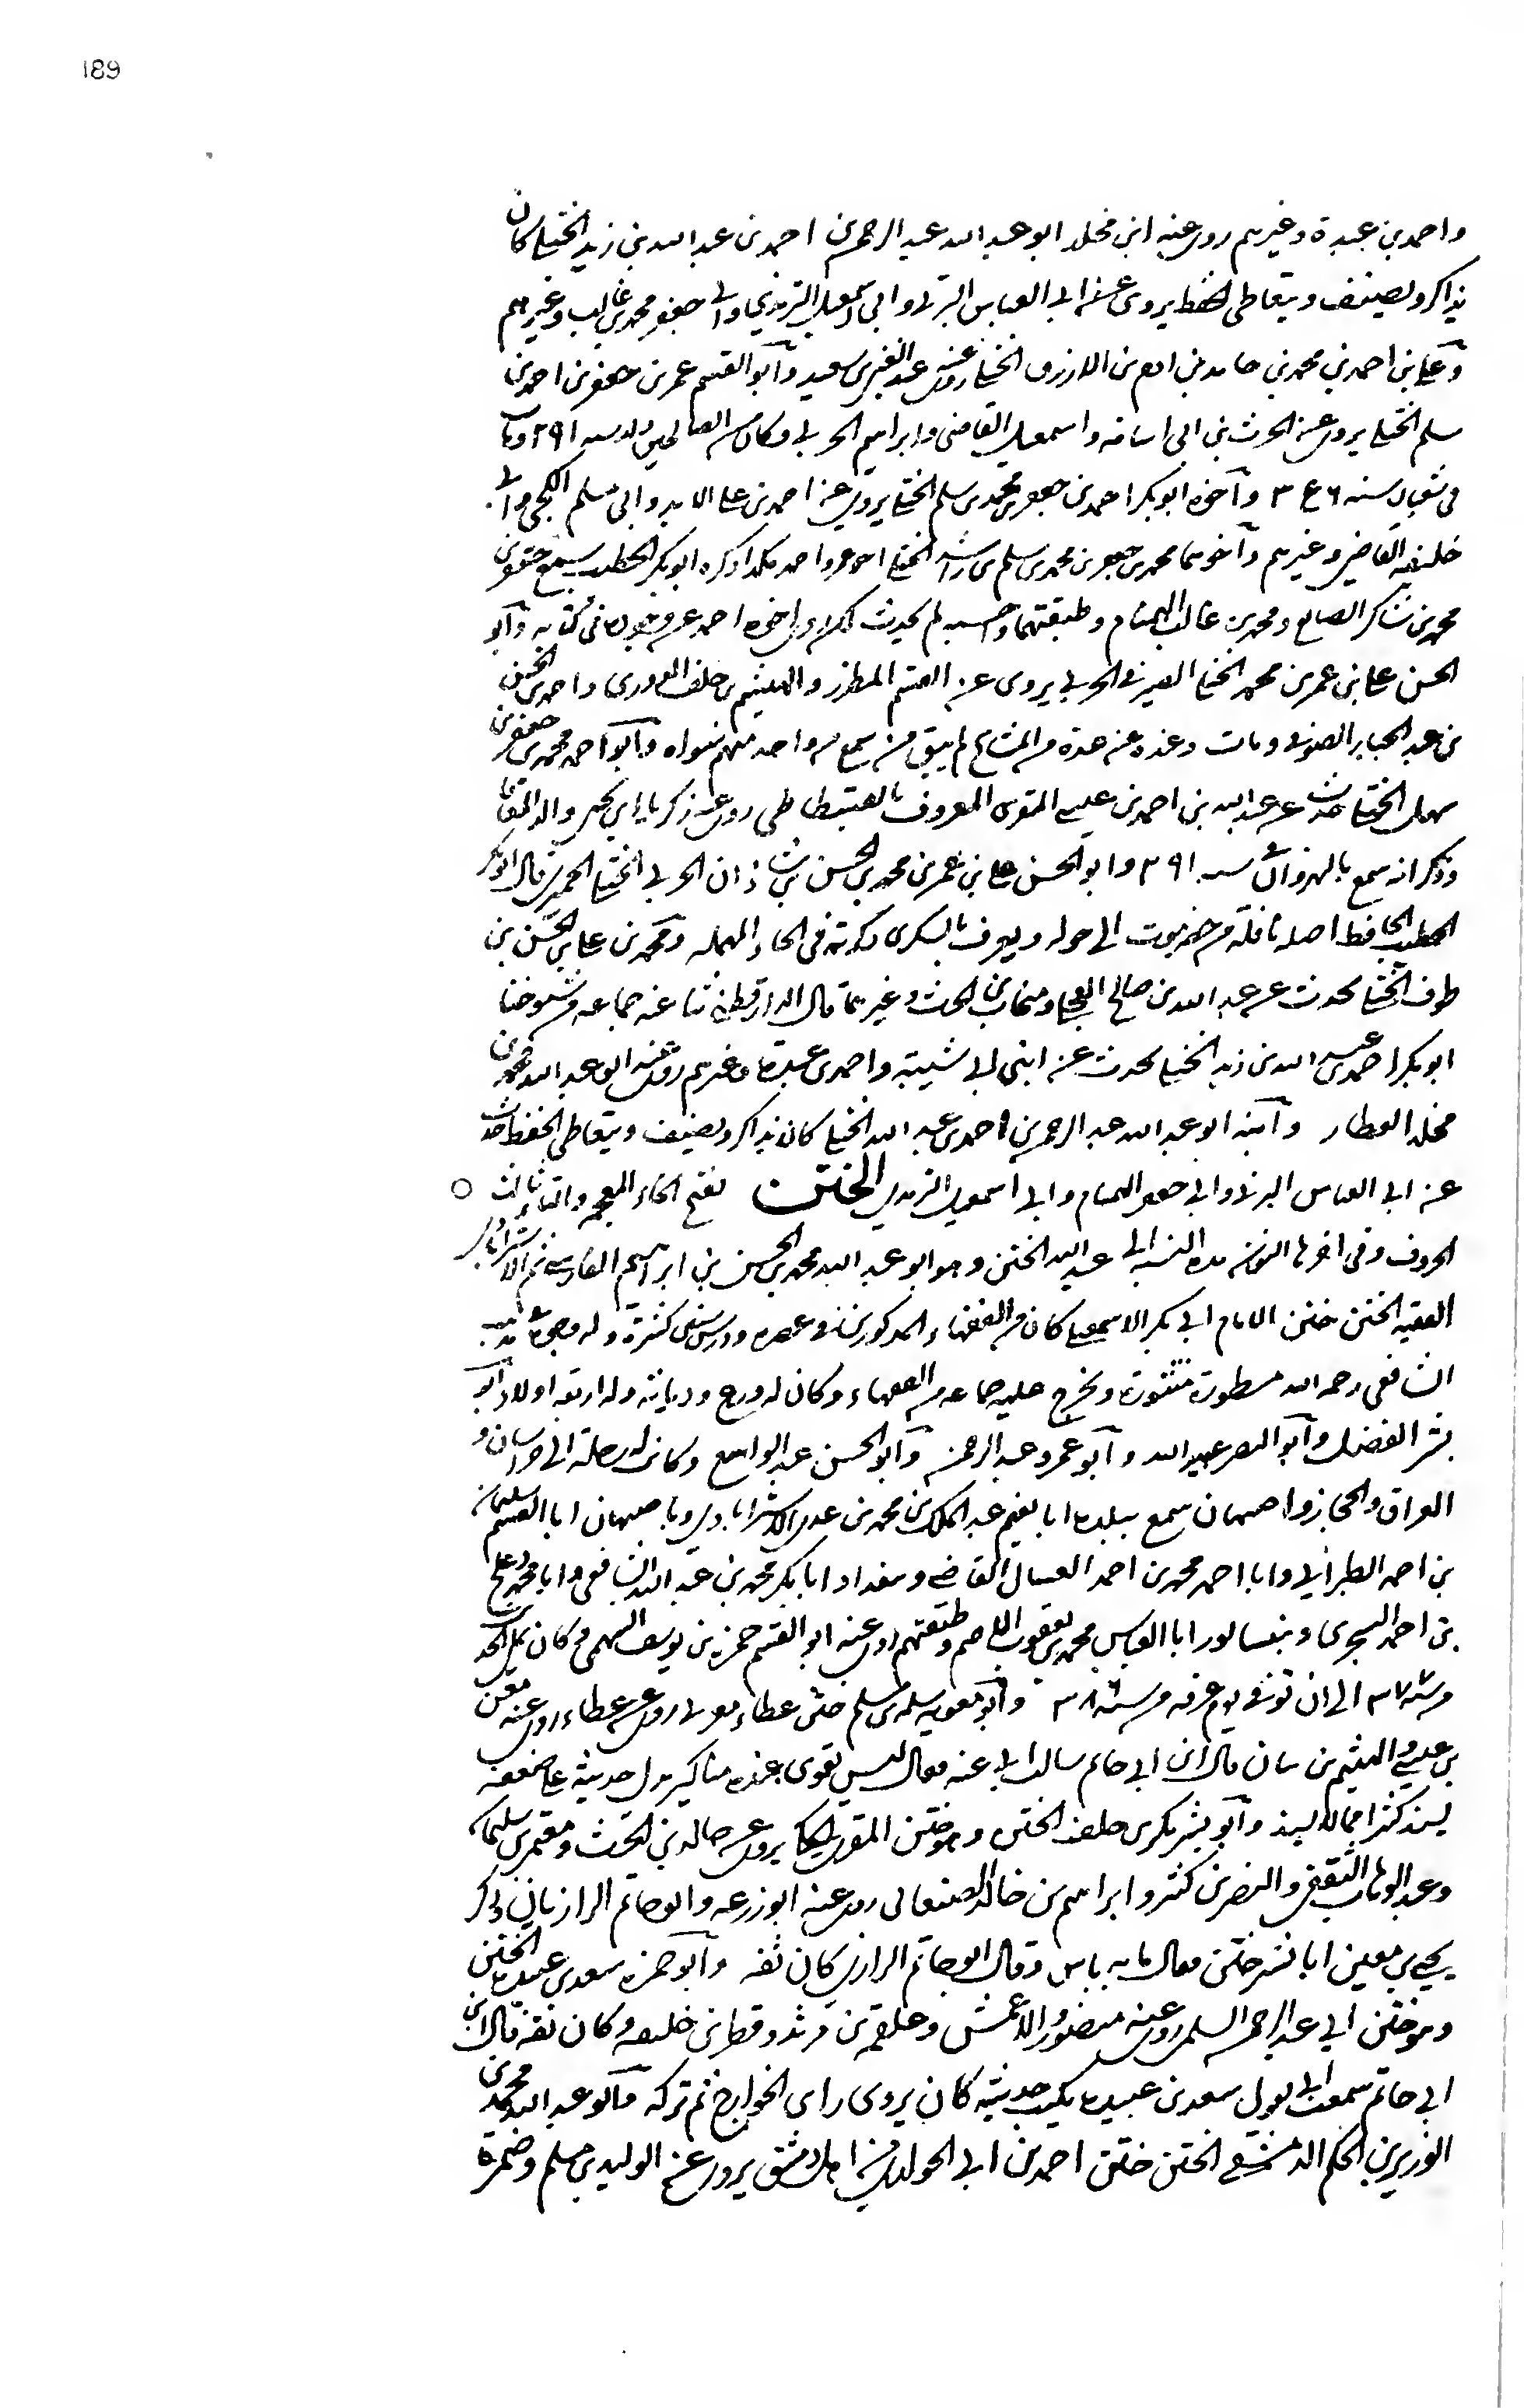 189
واحمد بن عبدة وغيرهم روى عنه ابن مخلد ابو عبد الله عبد الرحمن بن احمد بن عبد الله بن زيد الختلي كان
يذاكر ويصنف ويتعاطى الحفظ يروى عن ابى العباس البرتى وابى اسمعيل الترمذي وابى جعفر محمد بن غالب وغيرهم
وعلى بن احمد بن محمد بن حامد بن ادم بن الازرق الختلى روى عنه عبد الغنى بن سعيد وابو القسم عمر بن جعفر بن احمد بن
سلم الختلى يروى عن الحرث بن ابى اسامة واسمعيل القاضى وابراهيم الحربى وكان من الصالحين ولد سنه ٢٩١ ومات
فى شعبان سنه ٣٤٦ واخوه ابو بكر احمد بن جعفر بن محمد بن سلم الختلى يروى عن احمد بن على الابار وابى مسلم الكجى وابى
خليفه القاضى وغيرهم واخوهما محمد بن جعفر بن محمد بن سلم بن راشد الختلى اخو عمر واحمد هكذا ذكره ابو بكر الخطيب سمع جعفر بن
محمد بن شاكر الصايغ ومحمد بن غالب التمتام وطبقتهما واحسبه لم يحدث لكن روى اخوه احمد عن وجوده فى كتابه وابو
الحسن على بن عمر بن محمد الختلى الصيرفى الحربى يروى عن القسم المطرز والهيثم بن خلف الدورى واحمد بن الحسن
بن عبد الجبار الصوفى ومات وعنده عن عدة من المشايخ لم يبق من سمع من واحد منهم سواه وابو احمد محمد بن جعفر بن
سهل الختلى حدث عن عبد الله بن احمد بن عيسى المقرى المعروف بالفسطاطى روى عنه زكريا بن يحيى والد المعافى
وذكر انه سمع بالنهروان فى سنه ٢٩١ وابو الحسن على بن عمر بن محمد بن الحسن بن شاذان الحربى الختلى الحميرى قال ابو بكر
الخطيب الحافظ اصله ناقلة من حضرموت الى ختل ويعرف بالسكرى ذكرته فى الحاء المهمله ومحمد بن على بن الحسن بن
طوق الختلى يحدث عن عبد الله بن صالح العجلى ومنجاب بن الحرث وغيرهما قال الدارقطنى ثنا عنه جماعه من شيوخنا
ابو بكر احمد بن عبد الله بن زيد الختلى يحدث عن ابنى ابى شيبة واحمد بن عبدة وغيرهم روى عنه ابو عبد الله محمد بن
مخلد العطار وابنه ابو عبد الله عبد الرحمن بن احمد بن عبد الله الختلى كان يذاكر ويصنف ويتعاطى الحفظ حدث
عن ابى العباس البرتى وابى جعفر التمتام وابى اسمعيل الترمذى الختن بفتح الخاء المعجمه والتاء ثالث
الحروف وفى اخرها النون هذه النسبه الى عبد الله الختن وهو ابو عبد الله محمد بن الحسن بن ابراهيم الفارسى ثم الاستراباذى
الفقيه الختن ختن الامام ابى بكر الاسمعيلى كان من الفقهاء المذكورين فى عصره ودرس سنين كثيرة وله وجوه فى مذهب
الشافعى رحمه الله مسطورة منثورة وتخرج عليه جماعه من الفقهاء وكان له ورع وديانة وله اربعه اولاد ابو
بشر الفضل وابو النصر عبيد الله وابو عمرو عبد الرحمن وابو الحسن عبد الواسع وكان له رحلة الى خراسان و
العراق والحجاز واصبهان سمع ببلده ابا نعيم عبد الملك بن محمد بن عدى الاستراباذى وباصبهان ابا القسم سليمان
بن احمد الطبرانى وابا احمد محمد بن احمد العسال القاضى وببغداد ابا بكر محمد بن عبد الله الشافعى وابا محمد دعلج
بن احمد السجزى وبنيسابور ابا العباس محمد بن يعقوب الاصم وطبقتهم روى عنه ابو القسم حمزه بن يوسف السهمى وكان يملى الحديث
من سنه ٣٧٧ الى ان توفى يوم عرفه من سنه ٣٨٦ وابو معويه سلمه بن مسلم ختن عطاء يروى عن عطاء روى عنه معن
بن عيسى والهيثم بن قال ابن ابى حاتم سالت ابى عنه فقال ليس بقوى عنده مناكير يدل حديثه على ضعفه
وابو بشر بكر بن خلف الختن وهو ختن المقرى المكى يروى عن خالد بن الحرث ومعتمر بن سليمان
وعبد الوهاب الثقفى والنضر بن كثير وابراهيم بن خالد الصنعانى روى عنه ابو زرعه وابو حاتم الرازيان ذكر
يحيى بن معين ابا بشر ختن فقال ما به باس وقال ابو حاتم الرازى كان ثقه وابو حمزه سعد بن عبيده الختن
وهو ختن ابى عبد الرحمن السلمى روى عنه منصور والاعمش وعلقمه بن مرثد وفطر بن خليفه وكان ثقه قال ابن
ابى حاتم سمعت ابى يقول سعد بن عبيده يكتب حديثه كان يروى راى الخوارج ثم تركه وابو عبد الله محمد بن
الوزير بن الحكم الدمشقى الختن ختن احمد بن ابى الحوارى من اهل دمشق يروى عن الوليد بن مسلم وضمرة